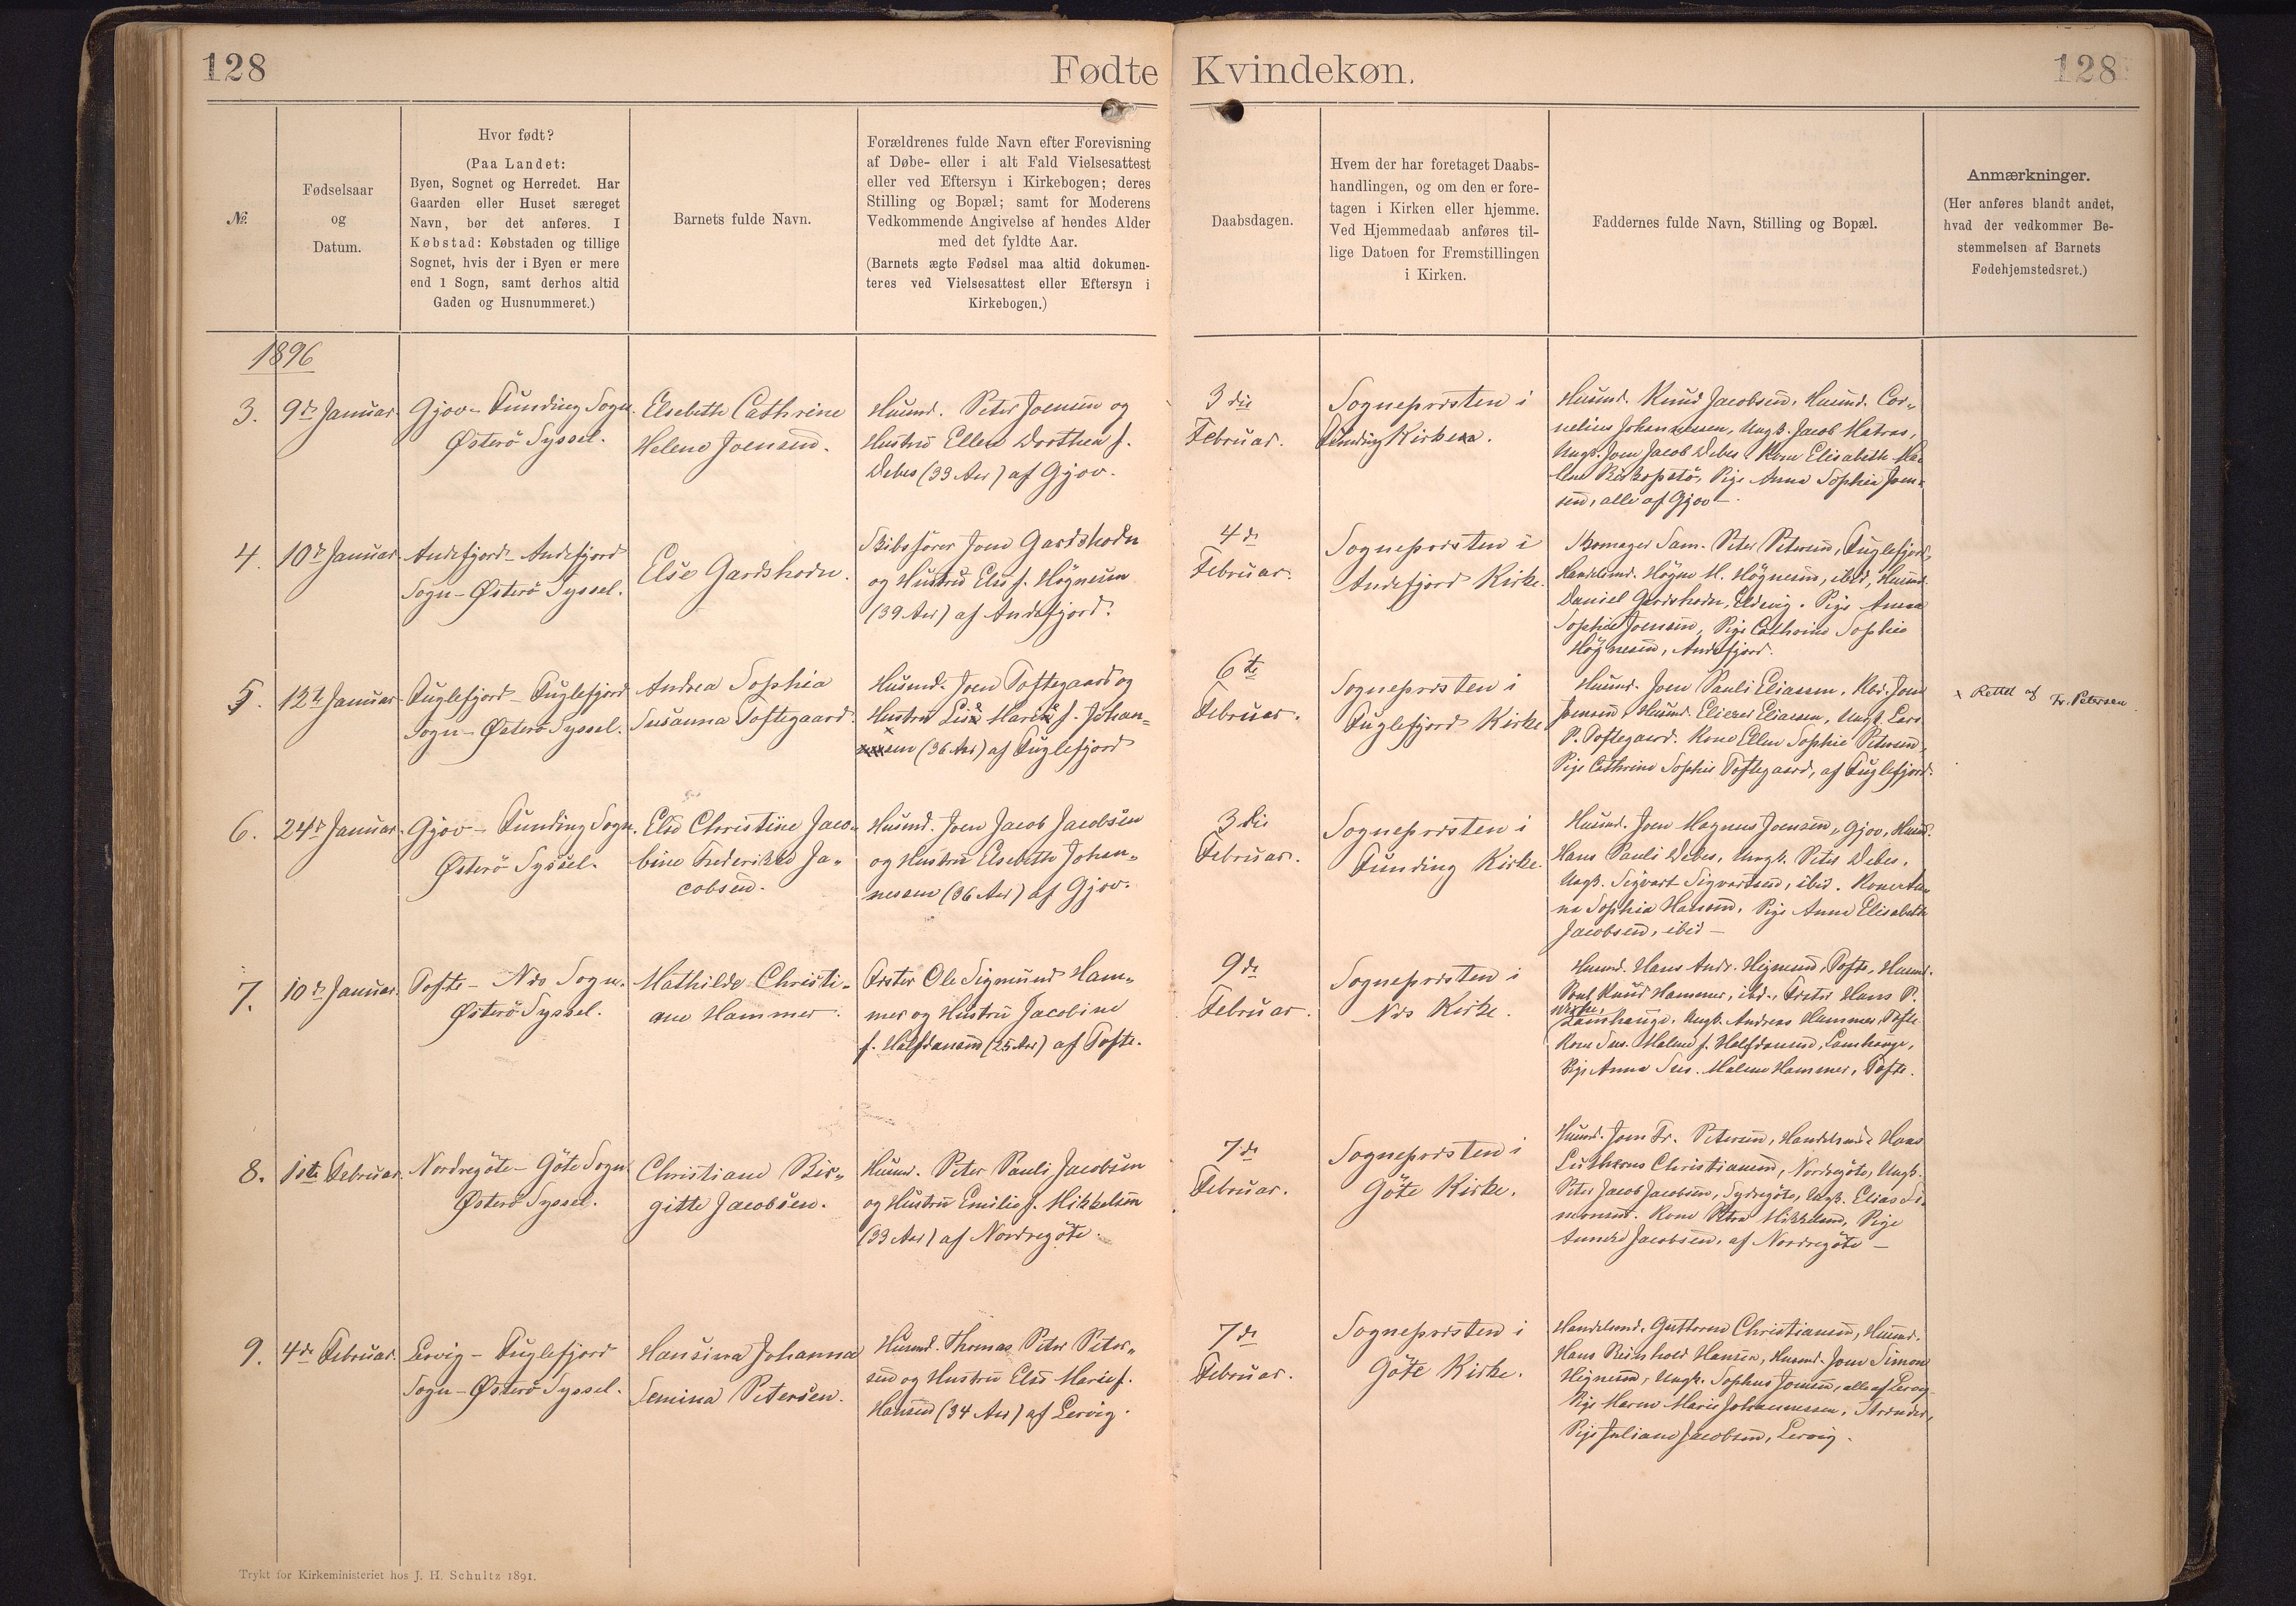 128
Fødte
Kvindekøn.
128
№
Fødselsaar
og
Datum.
Hvor født?
(Paa Landet:
Byen, Sognet og Herredet. Har
Gaarden eller Huset særeget
Navn, bør det anføres. I
Købstad: Købstaden og tillige
Sognet, hvis der i Byen er mere
end 1 Sogn, samt derhos altid
Gaden og Husnummeret.)
Barnets fulde Navn.
Forældrenes fulde Navn efter Forevisning
af Døbe- eller i alt Fald Vielsesattest
eller ved Eftersyn i Kirkebogen; deres
Stilling og Bopæl; samt for Moderens
Vedkommende Angivelse af hendes Alder
med det fyldte Aar.
(Barnets ægte Fødsel maa altid dokumen-
teres ved Vielsesattest eller Eftersyn i
Kirkebogen.)
Daabsdagen.
Hvem der har foretaget Daabs-
handlingen, og om den er fore-
tagen i Kirken eller hjemme.
Ved Hjemmedaab anføres til-
lige Datoen for Fremstillingen
i Kirken.
Faddernes fulde Navn, Stilling og Bopæl.
Anmærkninger.
(Her anføres blandt andet,
hvad der vedkommer Be-
stemmelsen af Barnets
Fødehjemstedsret.)
1896
3.
9de Januar.
Gjov - Funding Sogn.
Østerö Syssel.
Elsebeth Cathrine
Helene Joensen.
Husmd. Peter Joensen og
Hustru Ellen Dorthea f.
Debes (33 Aar) af Gjov.
3die
Februar.
Sognepræsten i
Funding Kirke.
Husmd. Knud Jacobsen, Husmd. Cor-
nelius Johannessen, Ungk. Jacob Matras,
Ungk. Joen Jacob Debes, Kone Elisabeth Ma-
lene Biskopstö, Pige Anna Sophie Joen-
sen, alle af Gjov -
4.
10de Januar
Andefjord - Andefjord
Sogn - Østerö Syssel.
Else Gardshodn.
Skibsfører Joen Gardshodn
og Hustru Else f. Högnesen
(39 Aar) af Andefjord.
4de
Februar.
Sognepræsten i
Andefjord Kirke.
Skomager Sam. Peter Petersen, Fuglefjord,
Handelsmd. Högne M. Högnesen, ibid, Husmd.
Daniel Gardshodn, Eldevig. Pige Anna
Sophie Joensen, Pige Cathrine Sophie
Högnesen, Andefjord.
5.
12te Januar
Fuglefjord - Fuglefjord
Sogn - Østerö Syssel.
Andrea Sophia
Susanna Toftegaard.
Husmd. Joen Toftegaard og
Hustru f. Johan-
sen (36 Aar) af Fuglefjord
6te
Februar.
Sognepræsten i
Fuglefjord Kirke
Husmd. Joen Pauli Eliassen, Joen
Joensen, Husmd. Eliezer Eliassen, Ungk. Lars
P. Toftegaard. Kone Ellen Sophie Petersen,
Pige Cathrine Sophie Toftegaard, af Fuglefjord.
x Rettet af Fr. Petersen
6.
24de Januar.
Gjov - Funding Sogn.
Østerö Syssel.
Else Christine Jaco-
bine Frederikke Ja-
cobsen.
Husmd. Joen Jacob Jacobsen
og Hustru Elsebeth Johan-
nesen (36 Aar) af Gjov.
3die
Februar.
Sognepræsten i
Funding Kirke.
Husmd. Joen Magnus Joensen, Gjov, Husmd.
Hans Pauli Debes, Ungk. Peter Debes,
Ungk. Sigvart Sigvartsen, ibid. Kone An-
na Sophia Hansen, Pige Anna Elisabeth
Jacobsen, ibid -
7.
10de Januar.
Tofte - Næs Sogn.
Østerö Syssel.
Mathilde Christi-
ane Hammer.
Fæster Ole Sigmund Ham-
mer og Hustru Jacobine
f. Halfdansen (25 Aar) af Tofte.
9de
Februar.
Sognepræsten i
Næs Kirke.
Husmd. Hans Andr. Tofte, Husmd.
Poul Knud Hammer, ibd., Fæster Hans P.
Lamhauge, Ungk. Andreas Hammer, Tofte
Kone Sus. Malene f. Halfdansen, Lamhauge,
Pige Anna Sus. Malene Hammer, Tofte.
8.
1ste Februar.
Nordregöte - Göte Sogn
Østerö Syssel.
Christiane Bir-
gitte Jacobsen.
Husmd. Peter Pauli Jacobsen
og Hustru Emilie f. Mikkelsen
(33 Aar) af Nordregöte.
7de
Februar.
Sognepræsten i
Göte Kirke.
Husmd. Joen Fr. Petersen, Handelsmd. Hans
Lutherus Christiansen, Nordregöte, Ungk.
Peter Jacob Jacobsen, Sydregöte, Ungk. Elias Si-
monsen. Kone Petra Mikkelsen, Pige
Jacobsen, af Nordregöte -
9.
4de Februar.
Lervig - Fuglefjord
Sogn - Østerö Syssel.
Hansina Johanna
Semina Petersen.
Husmd. Thomas Peter Peter-
sen og Hustru Else Marie f.
Hansen (34 Aar) af Lervig.
7de
Februar.
Sognepræsten i
Göte Kirke.
Handelsmd. Guttorm Christiansen, Husmd.
Hans Reinhold Hansen, Husmd. Joen Simon
Ungk. Sophus Joensen, alle af Lervig
Pige Maren Marie Johannessen, Strender,
Pige Juliane Jacobsen, Lervig.
Trykt for Kirkeministeriet hos J. H. Schultz 1891.